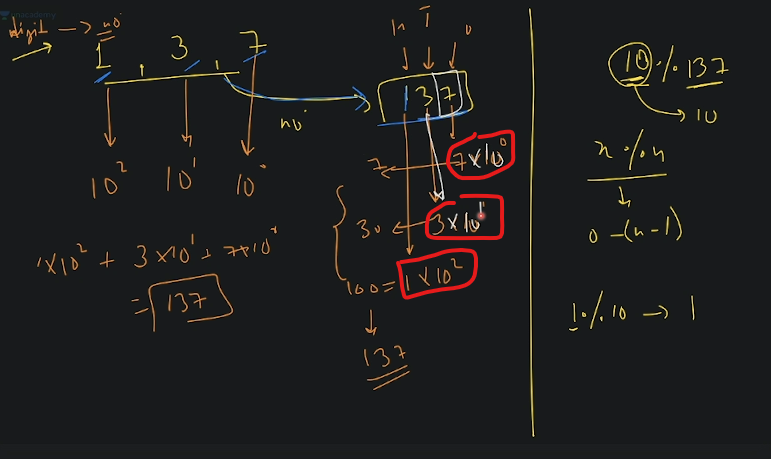 digit → no
1, 3, 7
10² 10¹ 10⁰
1×10² + 3×10¹ + 7×10⁰
= 137
no
H T O
1 3 7
7 ← 7×10⁰
30 ← 3×10¹
100 = 1×10²
↓
137
10 % 137
→ 10
x % n
↓
0 – (n – 1)
1 % 10 → 1